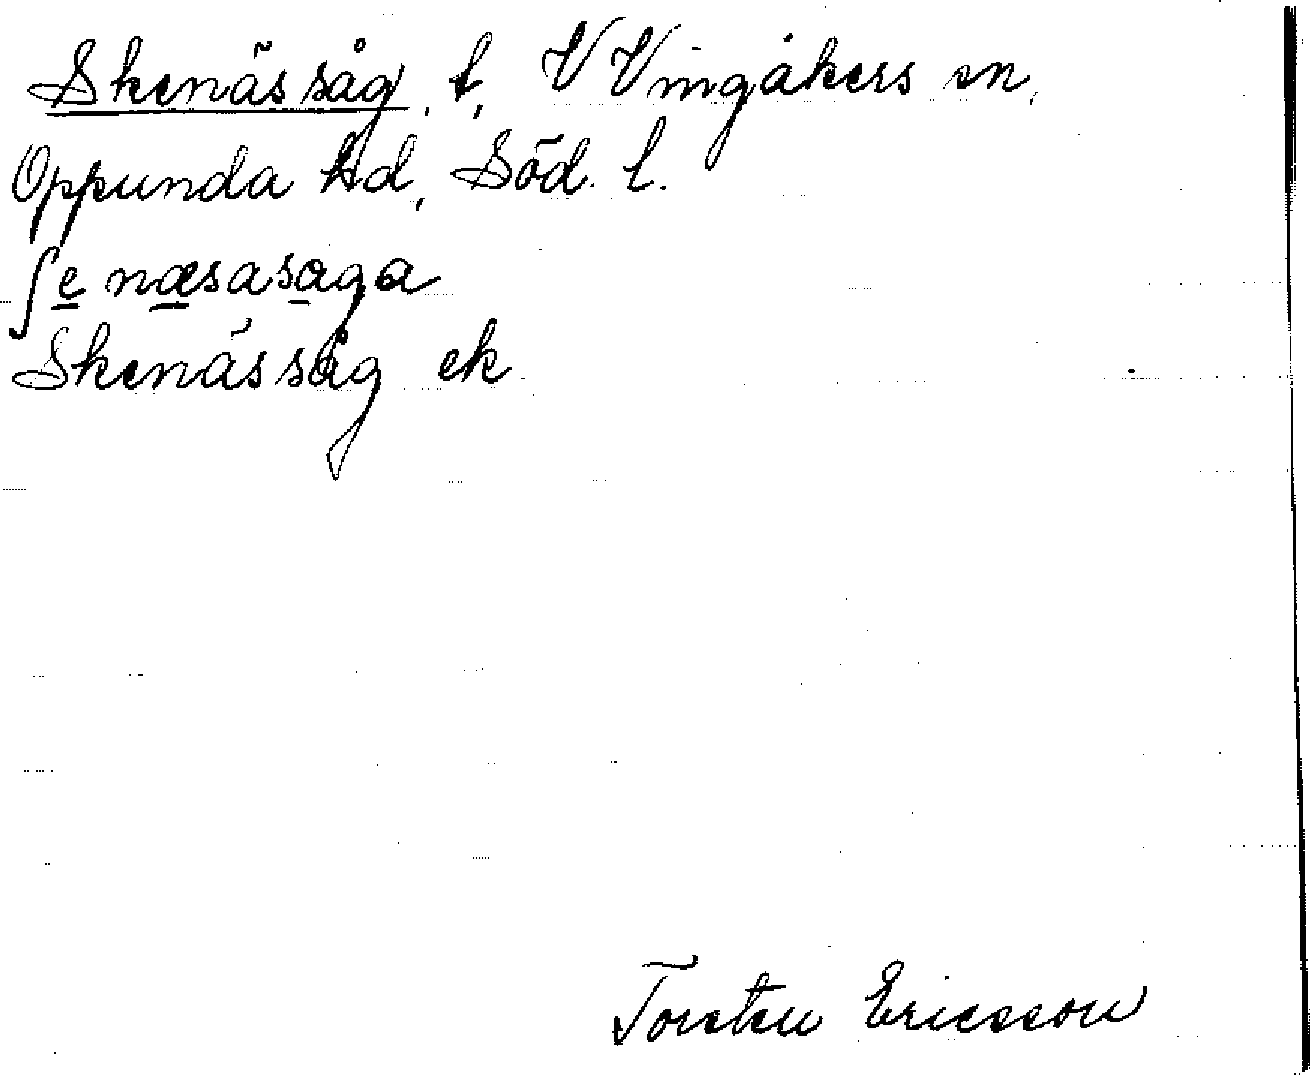 Skenässåg, t, V Vingåkers sn,
Oppunda hd, Söd. l.
ʃe næsasaga
Skenässåg ek
Torsten Ericsson